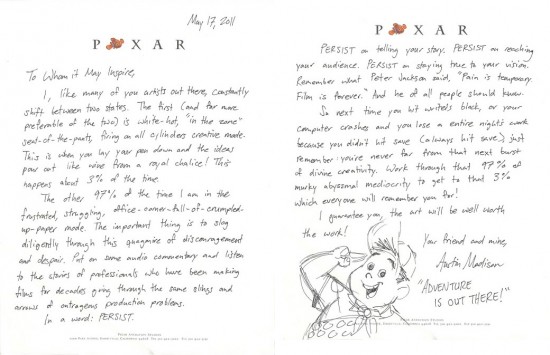 May 17, 2011
PIXAR
To Whom it May Inspire,
I, like many of you artists out there, constantly
shift between two states. The first (and far more
preferable of the two) is white-hot, "in the zone"
seat-of-the-pants, firing on all cylinders creative mode.
This is when you lay your pen down and the ideas
pour out like wine from a royal chalice! This
happens about 3% of the time.
The other 97% of the time I am in the
frustrated, struggling, office-corner-full-of-crumpled-
up-paper mode. The important thing is to slog
diligently through this quagmire of discouragement
and despair. Put on some audio commentary and listen
to the stories of professionals who have been making
films for decades going through the same slings and
arrows of outrageous production problems.
In a word: PERSIST.
PIXAR
PERSIST on telling your story. PERSIST on reaching
your audience. PERSIST on staying true to your vision.
Remember what Peter Jackson said, "Pain is temporary.
Film is forever." And he of all people should know.
So next time you hit writer's block, or your
computer crashes and you lose an entire night's work
because you didn't hit save (always hit save), just
remember: you're never far from that next burst
of divine creativity. Work through that 97% of
murky abyssmal mediocrity to get to that 3%
which everyone will remember you for!
I guarantee you, the art will be well worth
the work!
Your friend and mine,
Austin Madison
"ADVENTURE
IS OUT THERE!"